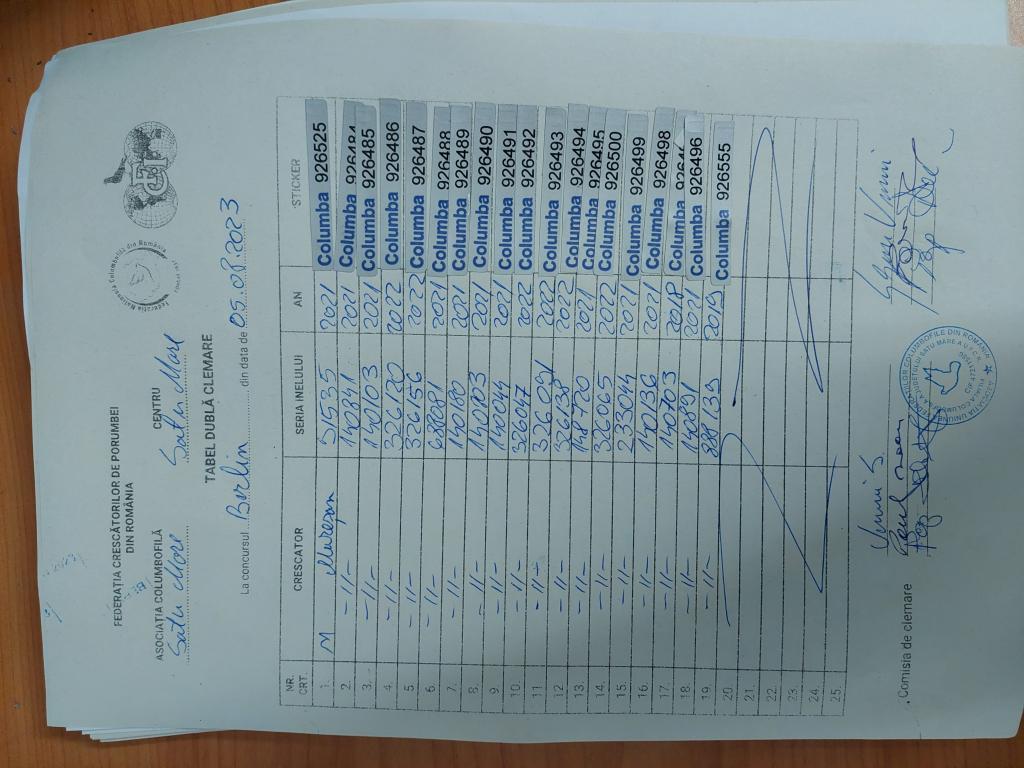 FCPR
Federația Națională Columbofilă din România
FEDERAȚIA CRESCĂTORILOR DE PORUMBEI
DIN ROMÂNIA
ASOCIAȚIA COLUMBOFILĂ CENTRU
Satu Mare Satu Mare
TABEL DUBLĂ CLEMARE
La concursul Berlin din data de 05.08.2023
NR. CRT. CRESCATOR SERIA INELULUI AN STICKER
1. M Mureșan 51535 2021 Columba 926525
2. -11- 140841 2021 Columba 926484
3. -11- 140103 2021 Columba 926485
4. -11- 326120 2022 Columba 926486
5 -11- 326156 2022 Columba 926487
6. -11- 688081 2021 Columba 926488
7. -11- 140180 2021 Columba 926489
8. -11- 140103 2021 Columba 926490
9. -11- 140044 2021 Columba 926491
10. -11- 326047 2022 Columba 926492
11 -11- 326091 2022 Columba 926493
12. -11- 326138 2022 Columba 926494
13. -11- 148720 2021 Columba 926495
14. -11- 326065 2022 Columba 926500
15. -11- 233044 2021 Columba 926499
16. -11- 140136 2021 Columba 926498
17. -11- 140703 2018 Columba
18. -11- 140891 2021 Columba 926496
19. -11- 888139 2019 Columba 926555
20.
21.
22.
23.
24.
25.
Comisia de clemare